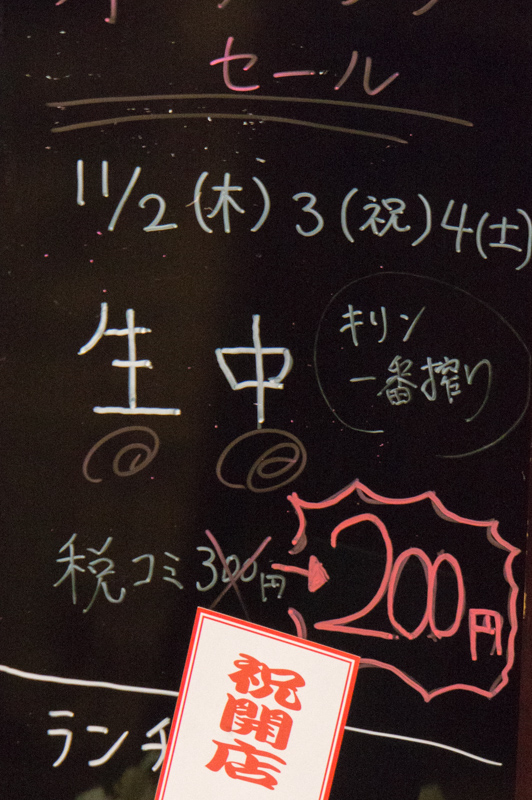 セール
11/2(木)3(祝)4(土)
生中
キリン
一番搾り
税コミ300円→200円
祝開店
ランチ